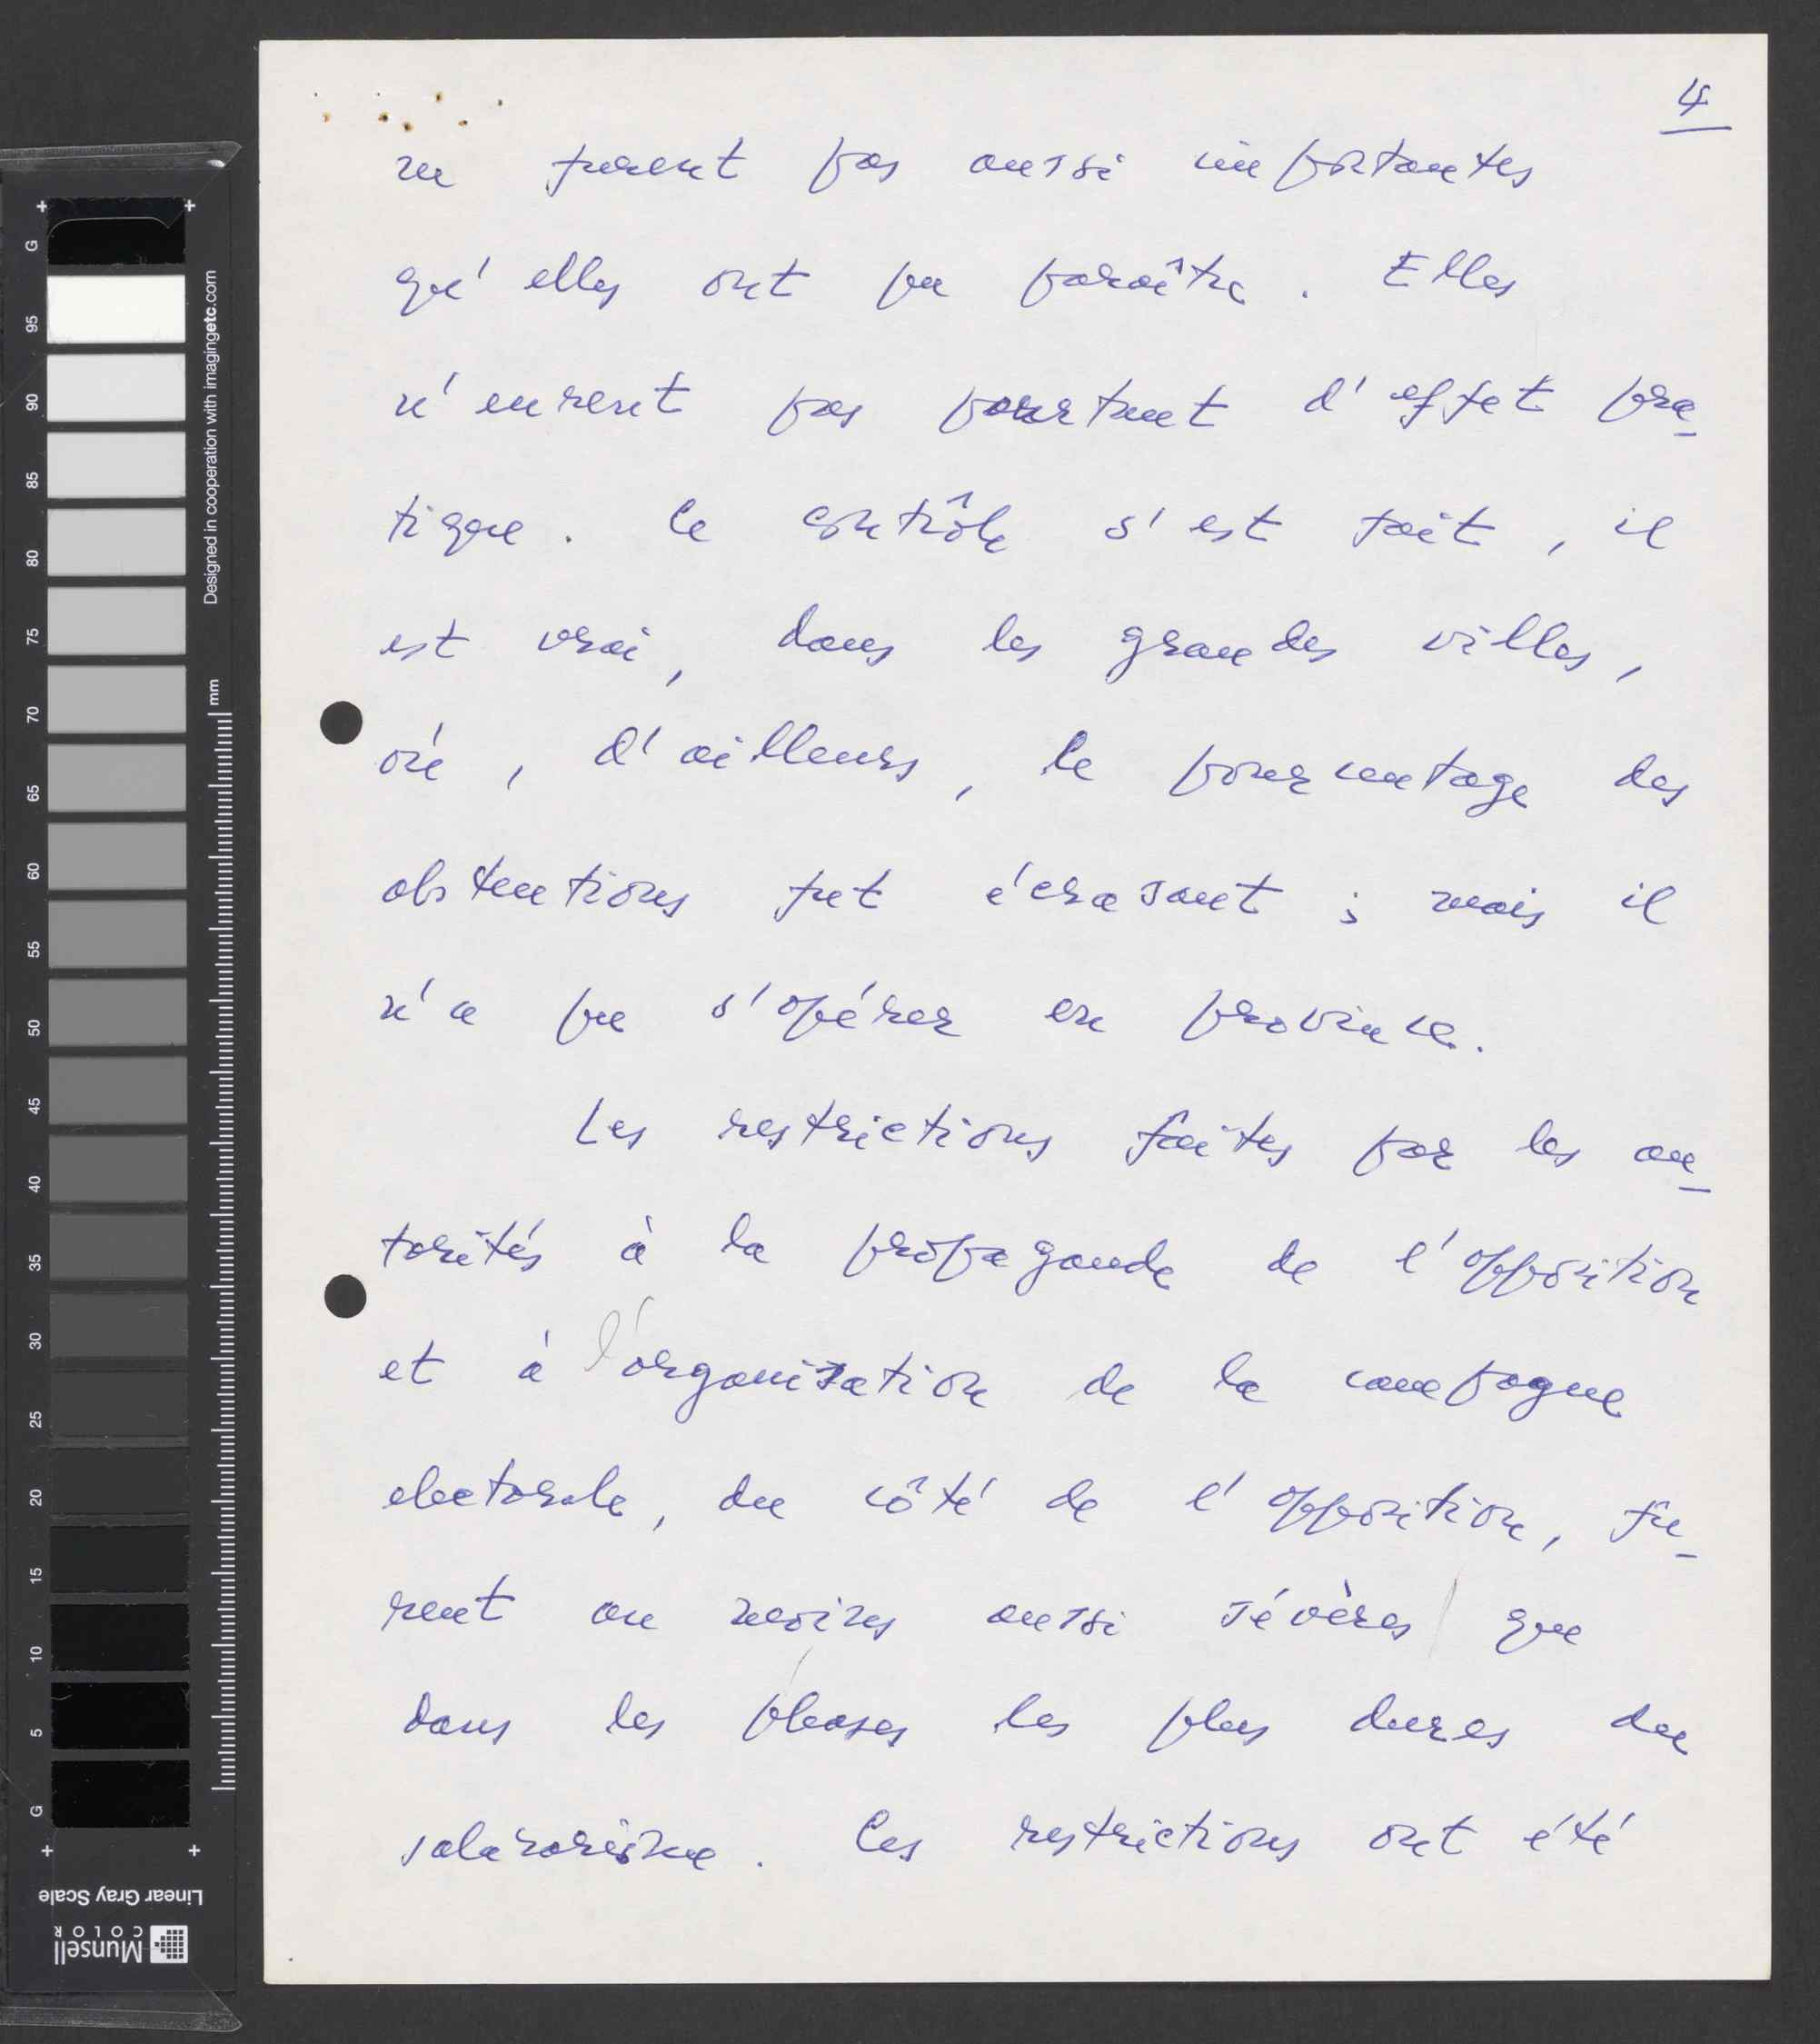 4
ne furent pas aussi importantes
qu'elles ont pu paraître. Elles
n'eurent pas pourtant d'effet pra-
tique. Ce contrôle s'est fait, il
est vrai, dans les grandes villes,
où, d'ailleurs, le pourcentage des
abstentions fut écrasant; mais il
n'a pu s'opérer en province.
Les restrictions faites par les au-
torités à la propagande de l'opposition
et à l'organisation de la campagne
electorale, du côté de l'opposition, fu-
rent au moins aussi sévères que
dans les phases les plus dures du
salazarisme. Ces restrictions ont été
G 95 90 85 80 75 70 65 60 55 50 45 40 35 30 25 20 15 10 5 G
Designed in cooperation with imagingetc.com
mm
Linear Gray Scale
Munsell
COLOR